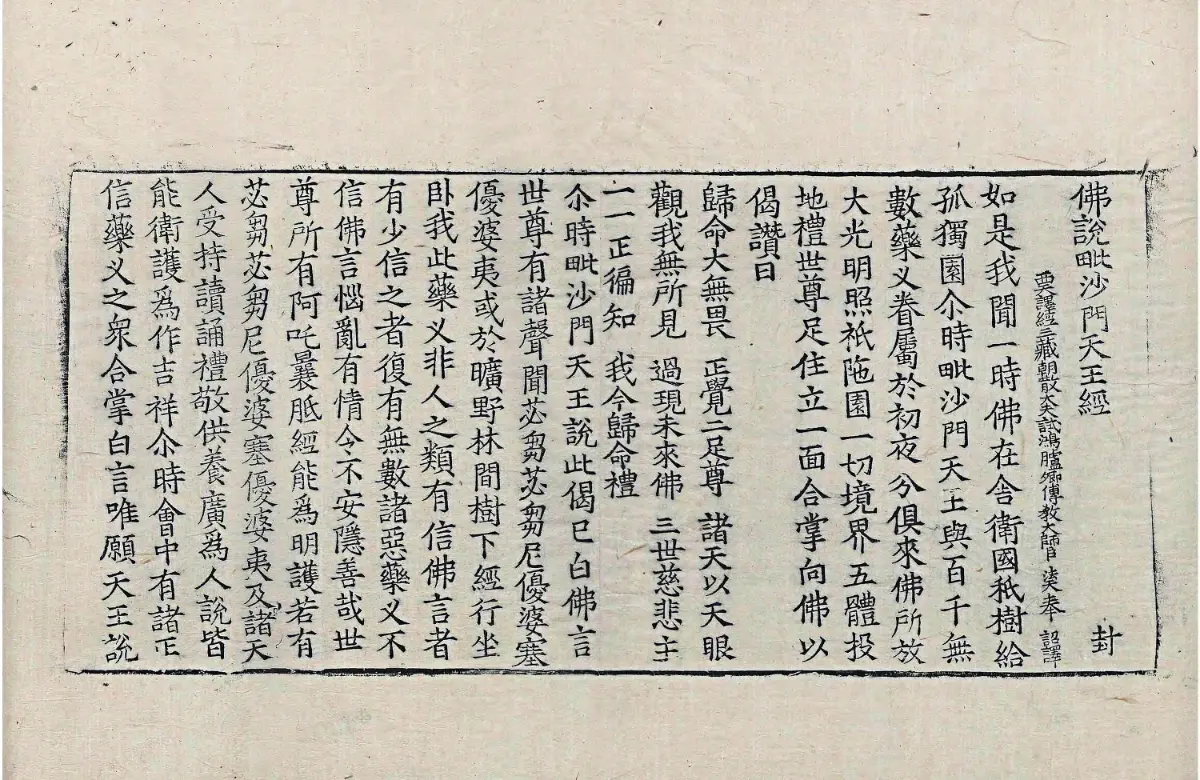 佛說毗沙門天王經 封
西天譯經三藏朝散大夫試鴻臚卿傳教大師臣法天奉 詔譯
如是我聞一時佛在舍衛國秖樹給
孤獨園尒時毗沙門天王與百千無
數藥叉眷屬於初夜分俱來佛所放
大光明照祇陁園一切境界五體投
地禮世尊足住立一面合掌向佛以
偈讚曰
歸命大無畏 正覺二足尊 諸天以天眼
觀我無所見 過現未來佛 三世慈悲主
一一正徧知 我今歸命禮
尒時毗沙門天王說此偈已白佛言
世尊有諸聲聞苾芻苾芻尼優婆塞
優婆夷或於曠野林間樹下經行坐
卧我此藥叉非人之類有信佛言者
有少信之者復有無數諸惡藥叉不
信佛言惱亂有情令不安隱善哉世
尊所有阿吒曩胝經能爲明護若有
苾芻苾芻尼優婆塞優婆夷及諸天
人受持讀誦禮敬供養廣爲人說皆
能衛護爲作吉祥尒時會中有諸正
信藥叉之衆合掌白言唯願天王說